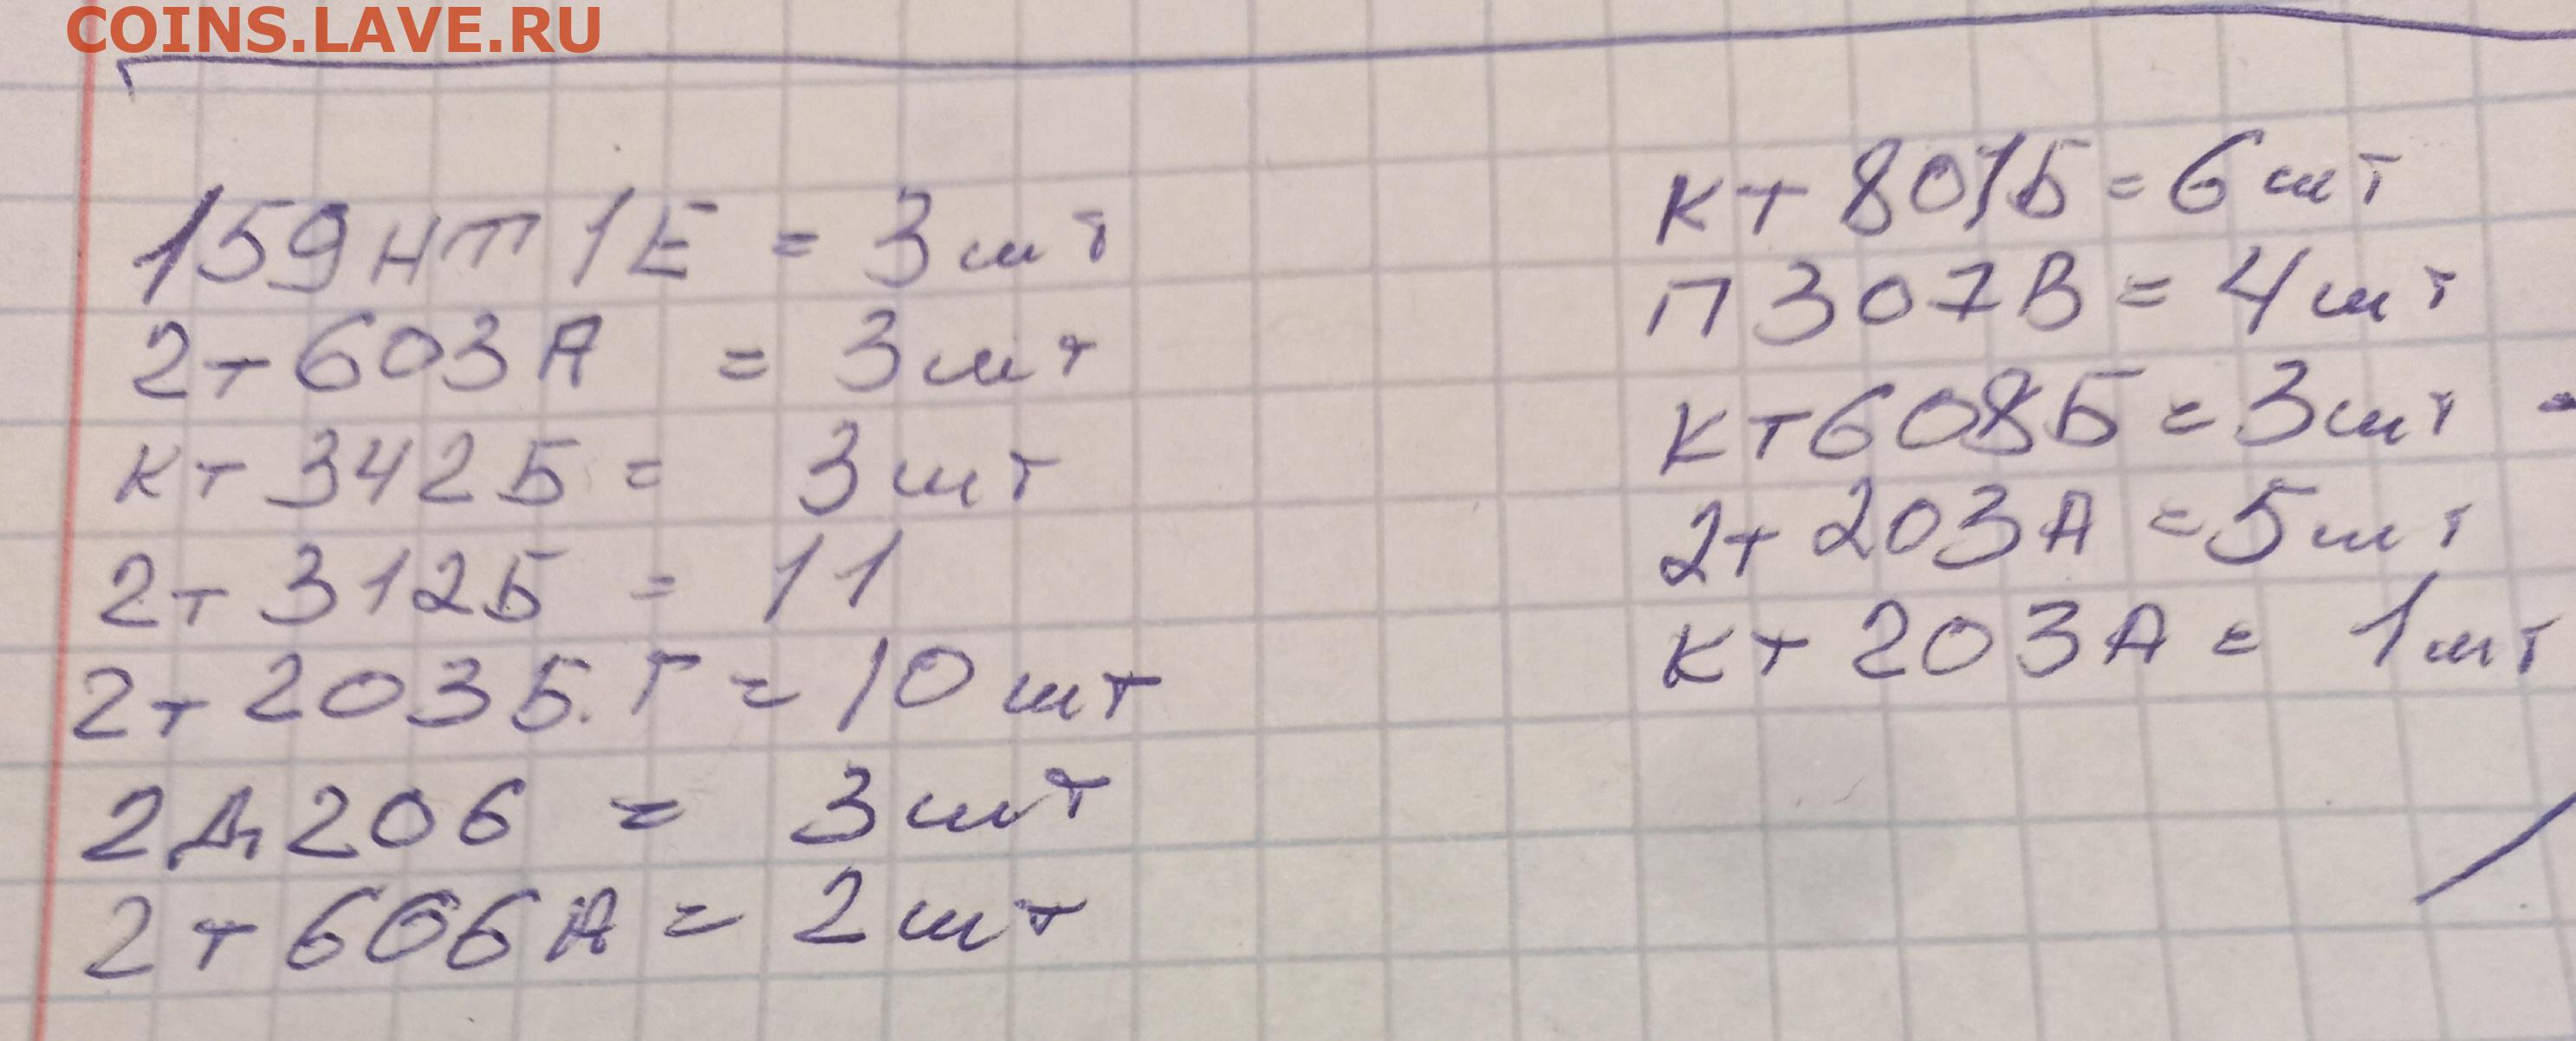 COINS.LAVE.RU
159НТ1Е = 3шт
2т603А = 3шт
кт342Б = 3шт
2т312Б = 11
2т203Б.Г = 10шт
2Д206 = 3шт
2т606А = 2шт
кт801Б = 6шт
П307В = 4шт
кт608Б = 3шт
2т203А = 5шт
кт203А = 1шт